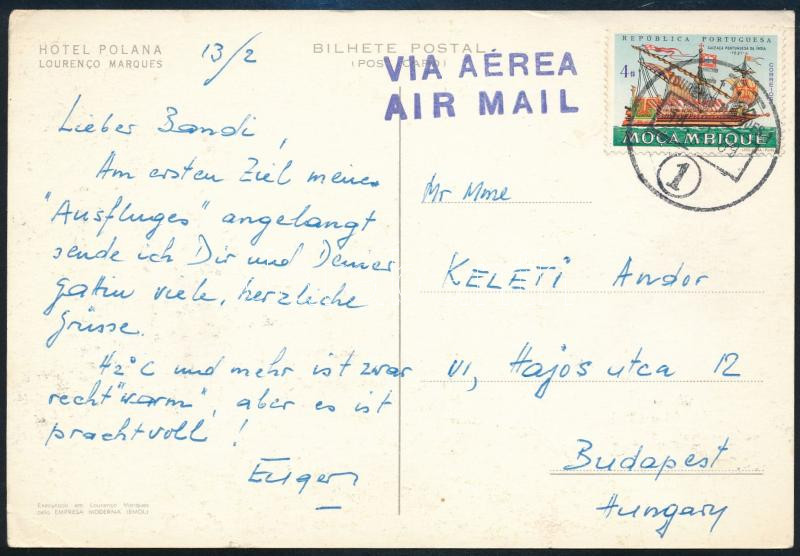 HOTEL POLANA
LOURENÇO MARQUES
13/2
BILHETE POSTAL
(POST CARD)
VIA AÉREA
AIR MAIL
REPÚBLICA PORTUGUESA
4$
MOÇAMBIQUE
1
Lieber Bandi,
Am ersten Ziel meines
"Ausfluges" angelangt
sende ich Dir und Deiner
Gattin viele, herzliche
Grüsse.
42°C und mehr ist zwar
recht "warm", aber es ist
prachtvoll!
Eugen
Mr Mme
KELETI Andor
VI, Hajós utca 12
Budapest
Hungary
Executado em Lourenço Marques
pela EMPRESA MODERNA (EMOL)